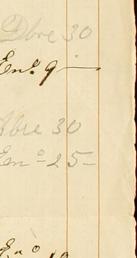 Dbre 30
Eno. 9 —
Abre 30
Eno 25 —
Eno 19